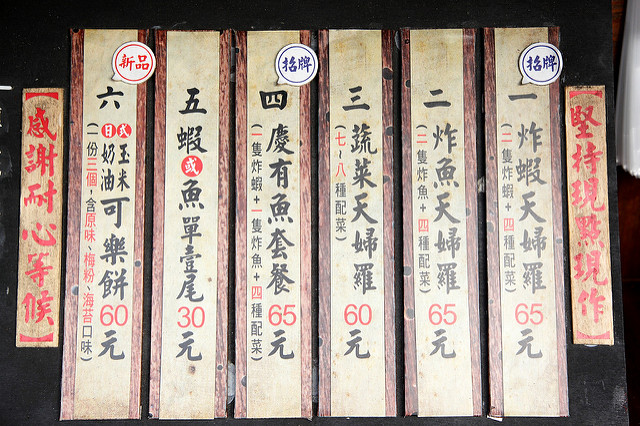 堅持現點現作
招牌
一 炸蝦天婦羅 65元
(二隻炸蝦+四種配菜)
二 炸魚天婦羅 65元
(二隻炸魚+四種配菜)
三 蔬菜天婦羅 60元
(七~八種配菜)
招牌
四 慶有魚套餐 65元
(一隻炸蝦+一隻炸魚+四種配菜)
五 蝦或魚單壹尾 30元
新品
六 日式奶油玉米可樂餅 60元
(一份三個,含原味、梅粉、海苔口味)
感謝耐心等候